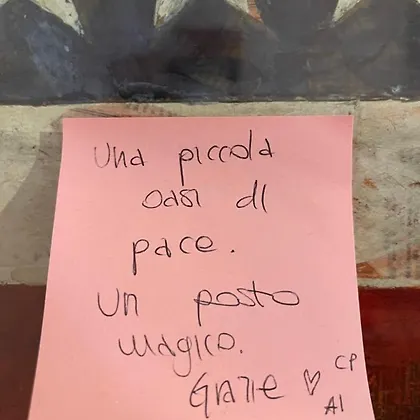 Una piccola
oasi di
pace.
un posto
magico.
Grazie ♡ CP
AI